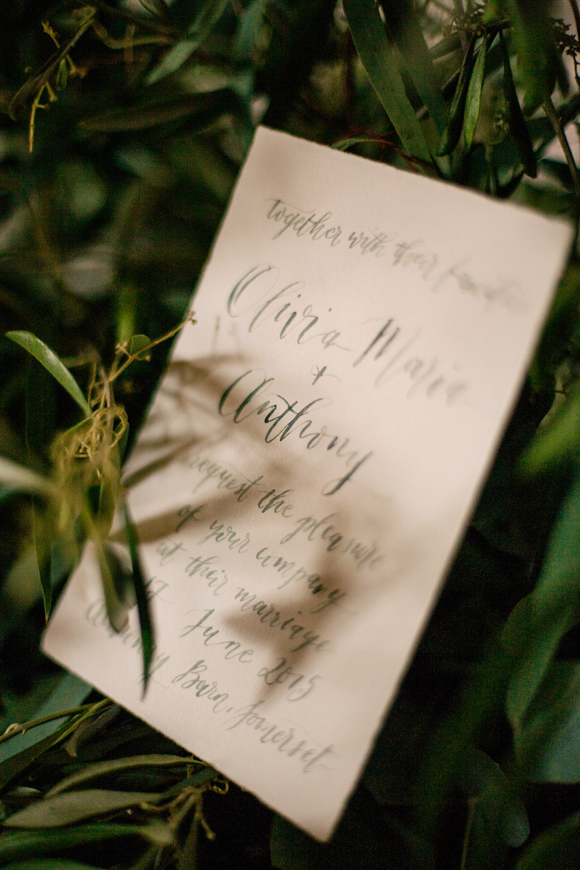 together with their families
Olivia Maria
+
Anthony
request the pleasure
of your company
at their marriage
17 June 2015
Barn, Somerset